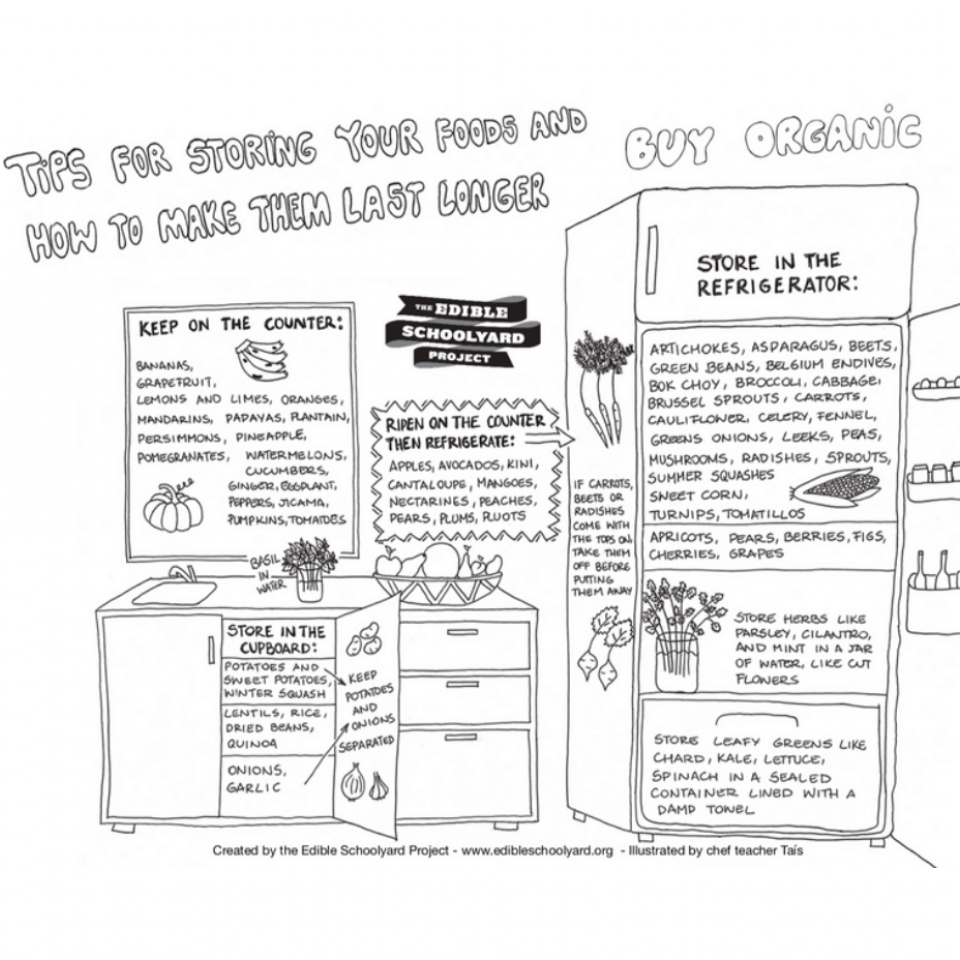 TIPS FOR STORING YOUR FOODS AND
HOW TO MAKE THEM LAST LONGER
BUY ORGANIC
KEEP ON THE COUNTER:
BANANAS,
GRAPEFRUIT,
LEMONS AND LIMES, ORANGES,
MANDARINS, PAPAYAS, PLANTAIN,
PERSIMMONS, PINEAPPLE,
POMEGRANATES, WATERMELONS,
CUCUMBERS,
GINGER, EGGPLANT,
PEPPERS, JICAMA,
PUMPKINS, TOMATOES
THE EDIBLE
SCHOOLYARD
PROJECT
RIPEN ON THE COUNTER
THEN REFRIGERATE:
APPLES, AVOCADOS, KIWI,
CANTALOUPE, MANGOES,
NECTARINES, PEACHES,
PEARS, PLUMS, PLUOTS
BASIL
IN
WATER
STORE IN THE
CUPBOARD:
POTATOES AND
SWEET POTATOES,
WINTER SQUASH
LENTILS, RICE,
DRIED BEANS,
QUINOA
ONIONS,
GARLIC
KEEP
POTATOES
AND
ONIONS
SEPARATED
IF CARROTS,
BEETS OR
RADISHES
COME WITH
THE TOPS ON,
TAKE THEM
OFF BEFORE
PUTTING
THEM AWAY
STORE IN THE
REFRIGERATOR:
ARTICHOKES, ASPARAGUS, BEETS,
GREEN BEANS, BELGIUM ENDIVES,
BOK CHOY, BROCCOLI, CABBAGE,
BRUSSEL SPROUTS, CARROTS,
CAULIFLOWER, CELERY, FENNEL,
GREENS ONIONS, LEEKS, PEAS,
MUSHROOMS, RADISHES, SPROUTS,
SUMMER SQUASHES
SWEET CORN,
TURNIPS, TOMATILLOS
APRICOTS, PEARS, BERRIES, FIGS,
CHERRIES, GRAPES
STORE HERBS LIKE
PARSLEY, CILANTRO,
AND MINT IN A JAR
OF WATER, LIKE CUT
FLOWERS
STORE LEAFY GREENS LIKE
CHARD, KALE, LETTUCE,
SPINACH IN A SEALED
CONTAINER LINED WITH A
DAMP TOWEL
Created by the Edible Schoolyard Project - www.edibleschoolyard.org - Illustrated by chef teacher Taís